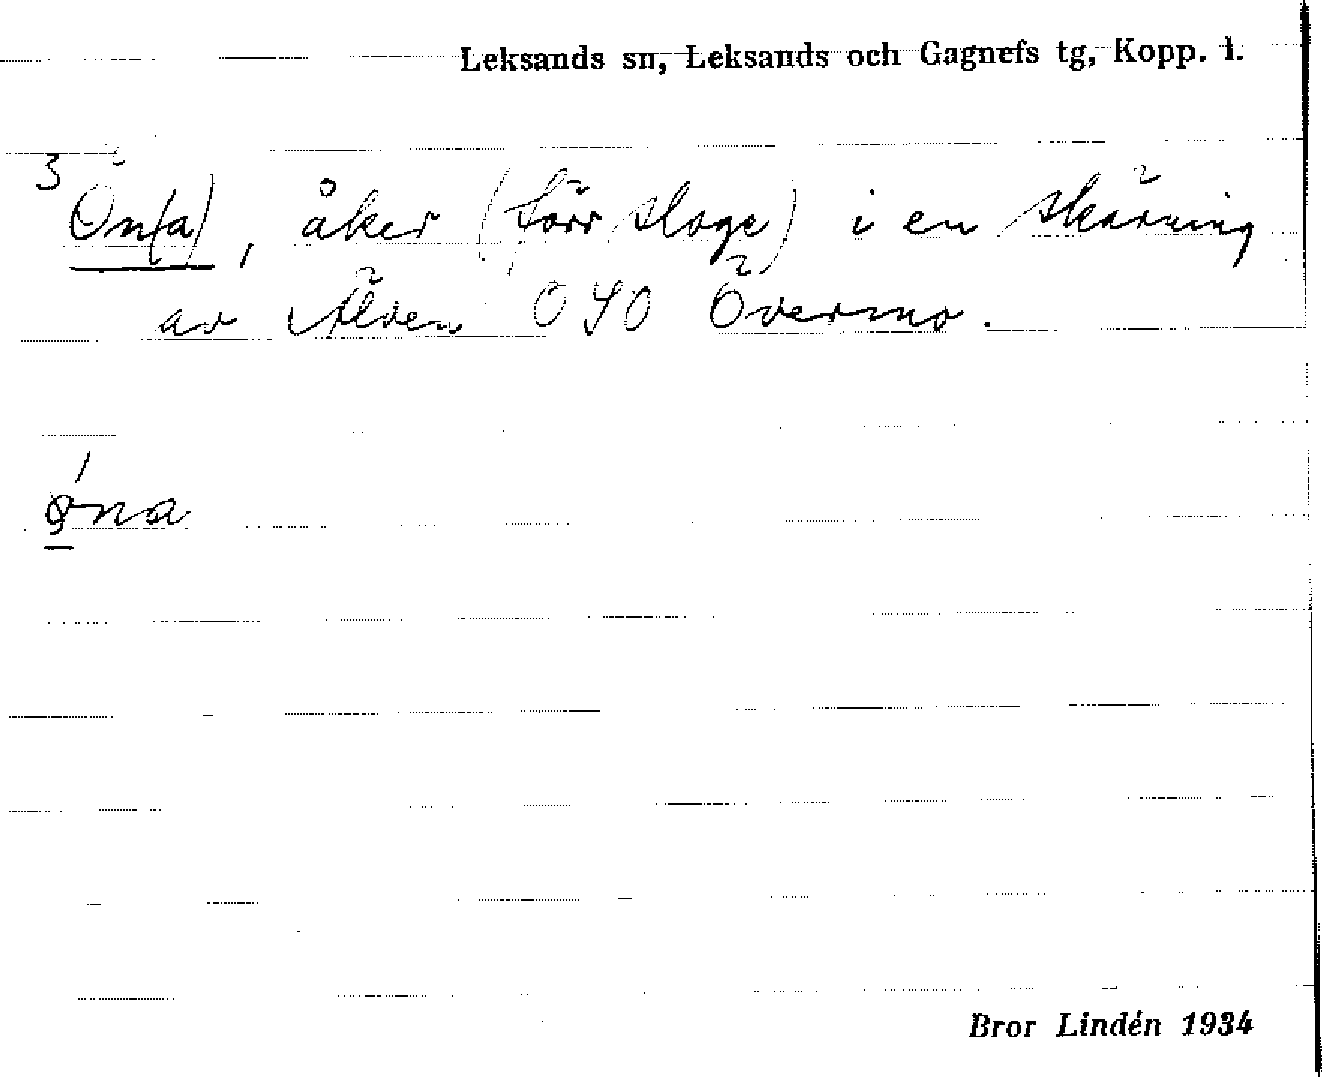 Leksands sn, Leksands och Gagnefs tg, Kopp. l.
3 Ön(a), åker (förr sloge) i en skärning
av Älven OSO Övermo.
øna
Bror Lindén 1934